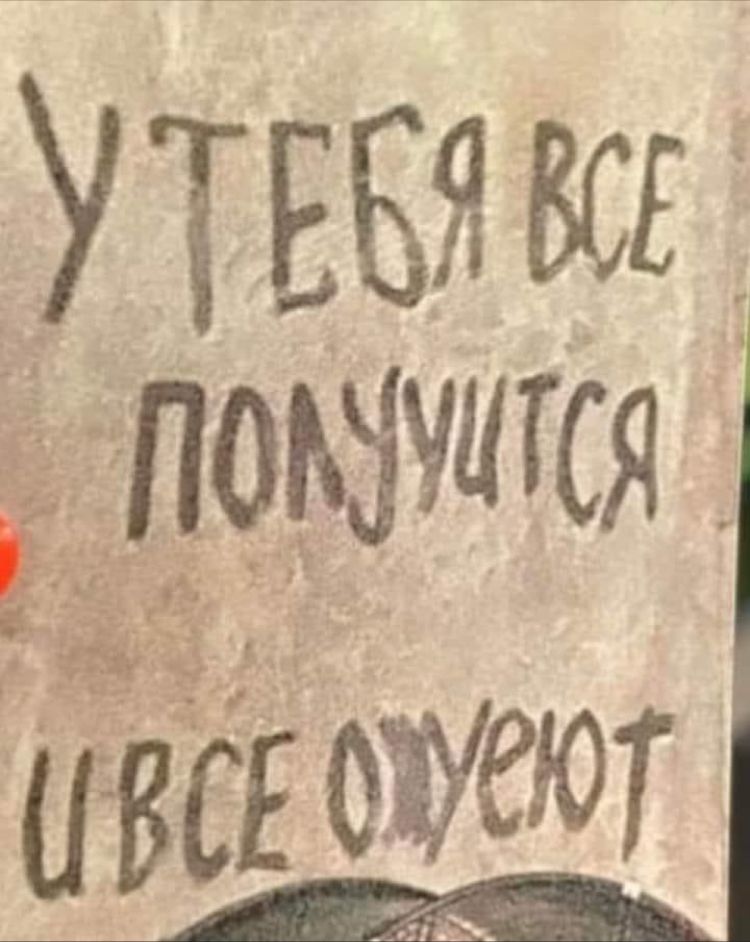 У ТЕБЯ ВСЕ
ПОЛУЧИТСЯ
И ВСЕ ОХУЕЮТ